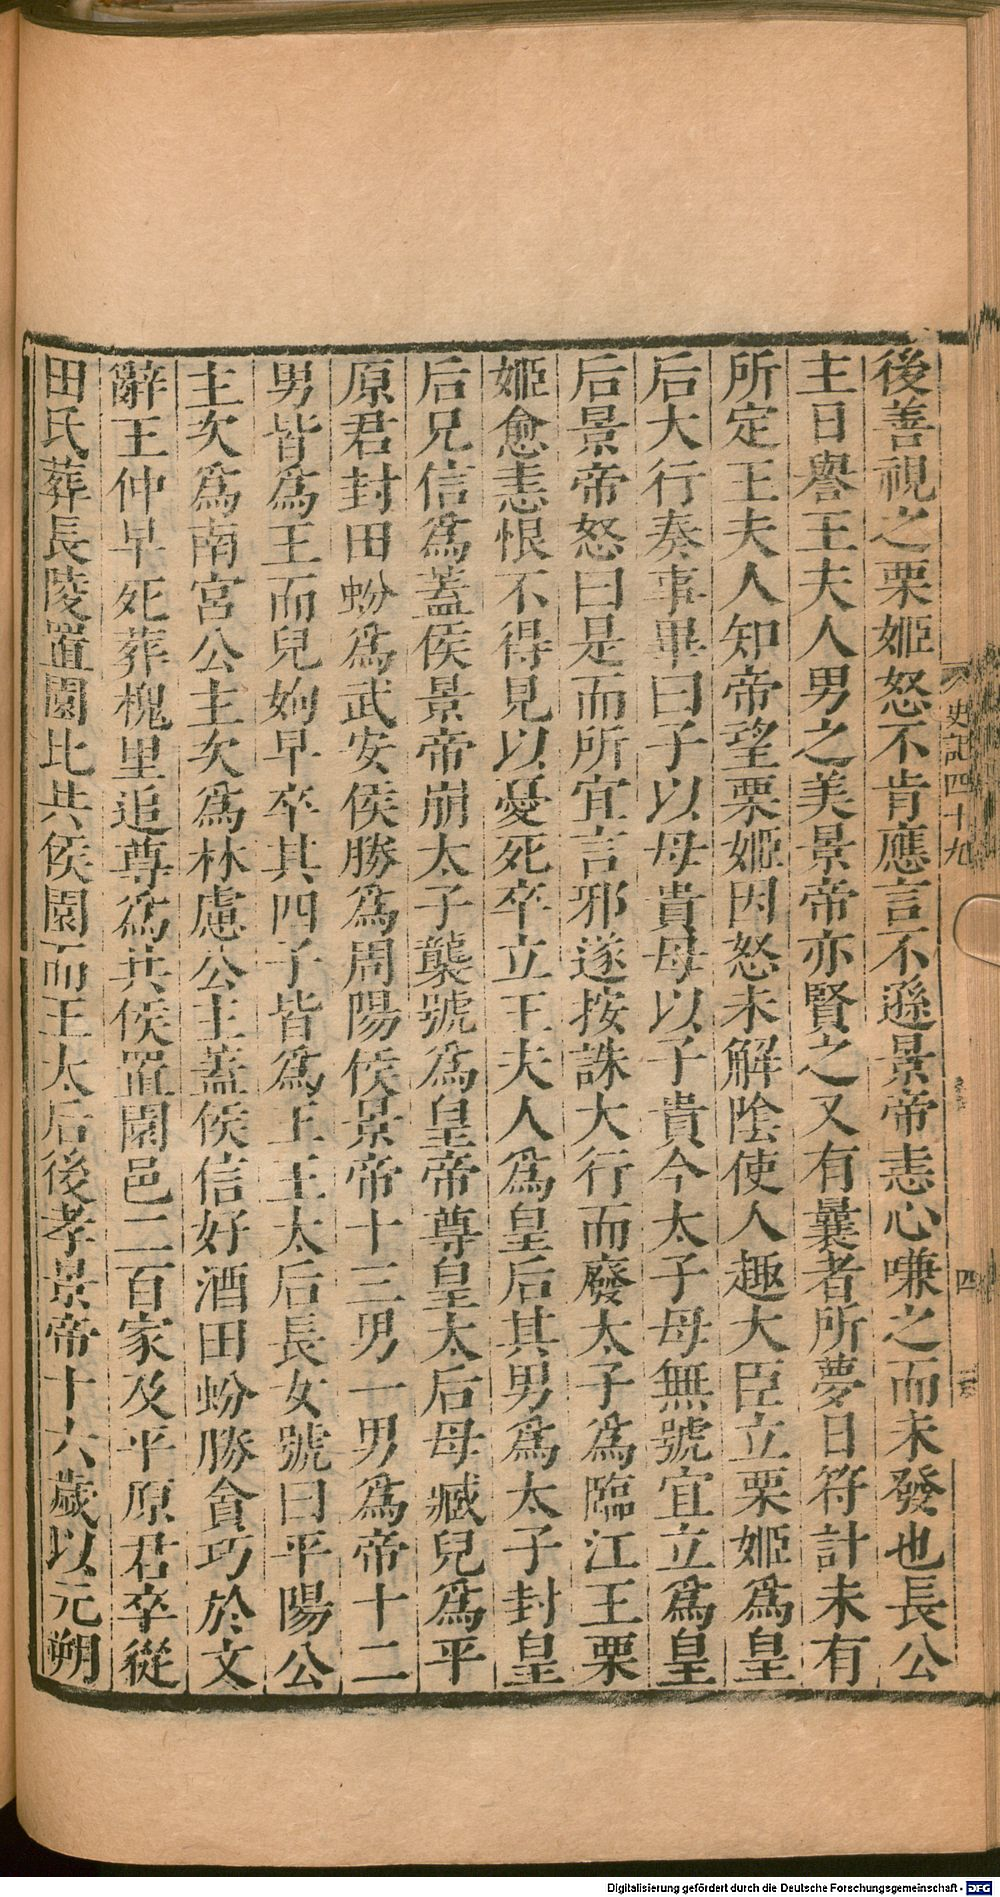 後善視之栗姬怒不肯應言不遜景帝恚心嗛之而未發也長公
主日譽王夫人男之美景帝亦賢之又有曩者所夢日符計未有
所定王夫人知帝望栗姬因怒未解陰使人趣大臣立栗姬爲皇
后大行奏事畢曰子以母貴母以子貴今太子母無號宜立爲皇
后景帝怒曰是而所宜言邪遂按誅大行而廢太子爲臨江王栗
姬愈恚恨不得見以憂死卒立王夫人爲皇后其男爲太子封皇
后兄信爲蓋侯景帝崩太子襲號爲皇帝尊皇太后母臧兒爲平
原君封田蚡爲武安侯勝爲周陽侯景帝十三男一男爲帝十二
男皆爲王而兒姁早卒其四子皆爲王王太后長女號曰平陽公
主次爲南宮公主次爲林慮公主蓋侯信好酒田蚡勝貪巧於文
辭王仲早死葬槐里追尊爲共侯置園邑二百家及平原君卒從
田氏葬長陵置園比共侯園而王太后後孝景帝十六歲以元朔
史記四十九
四
Digitalisierung gefördert durch die Deutsche Forschungsgemeinschaft - DFG